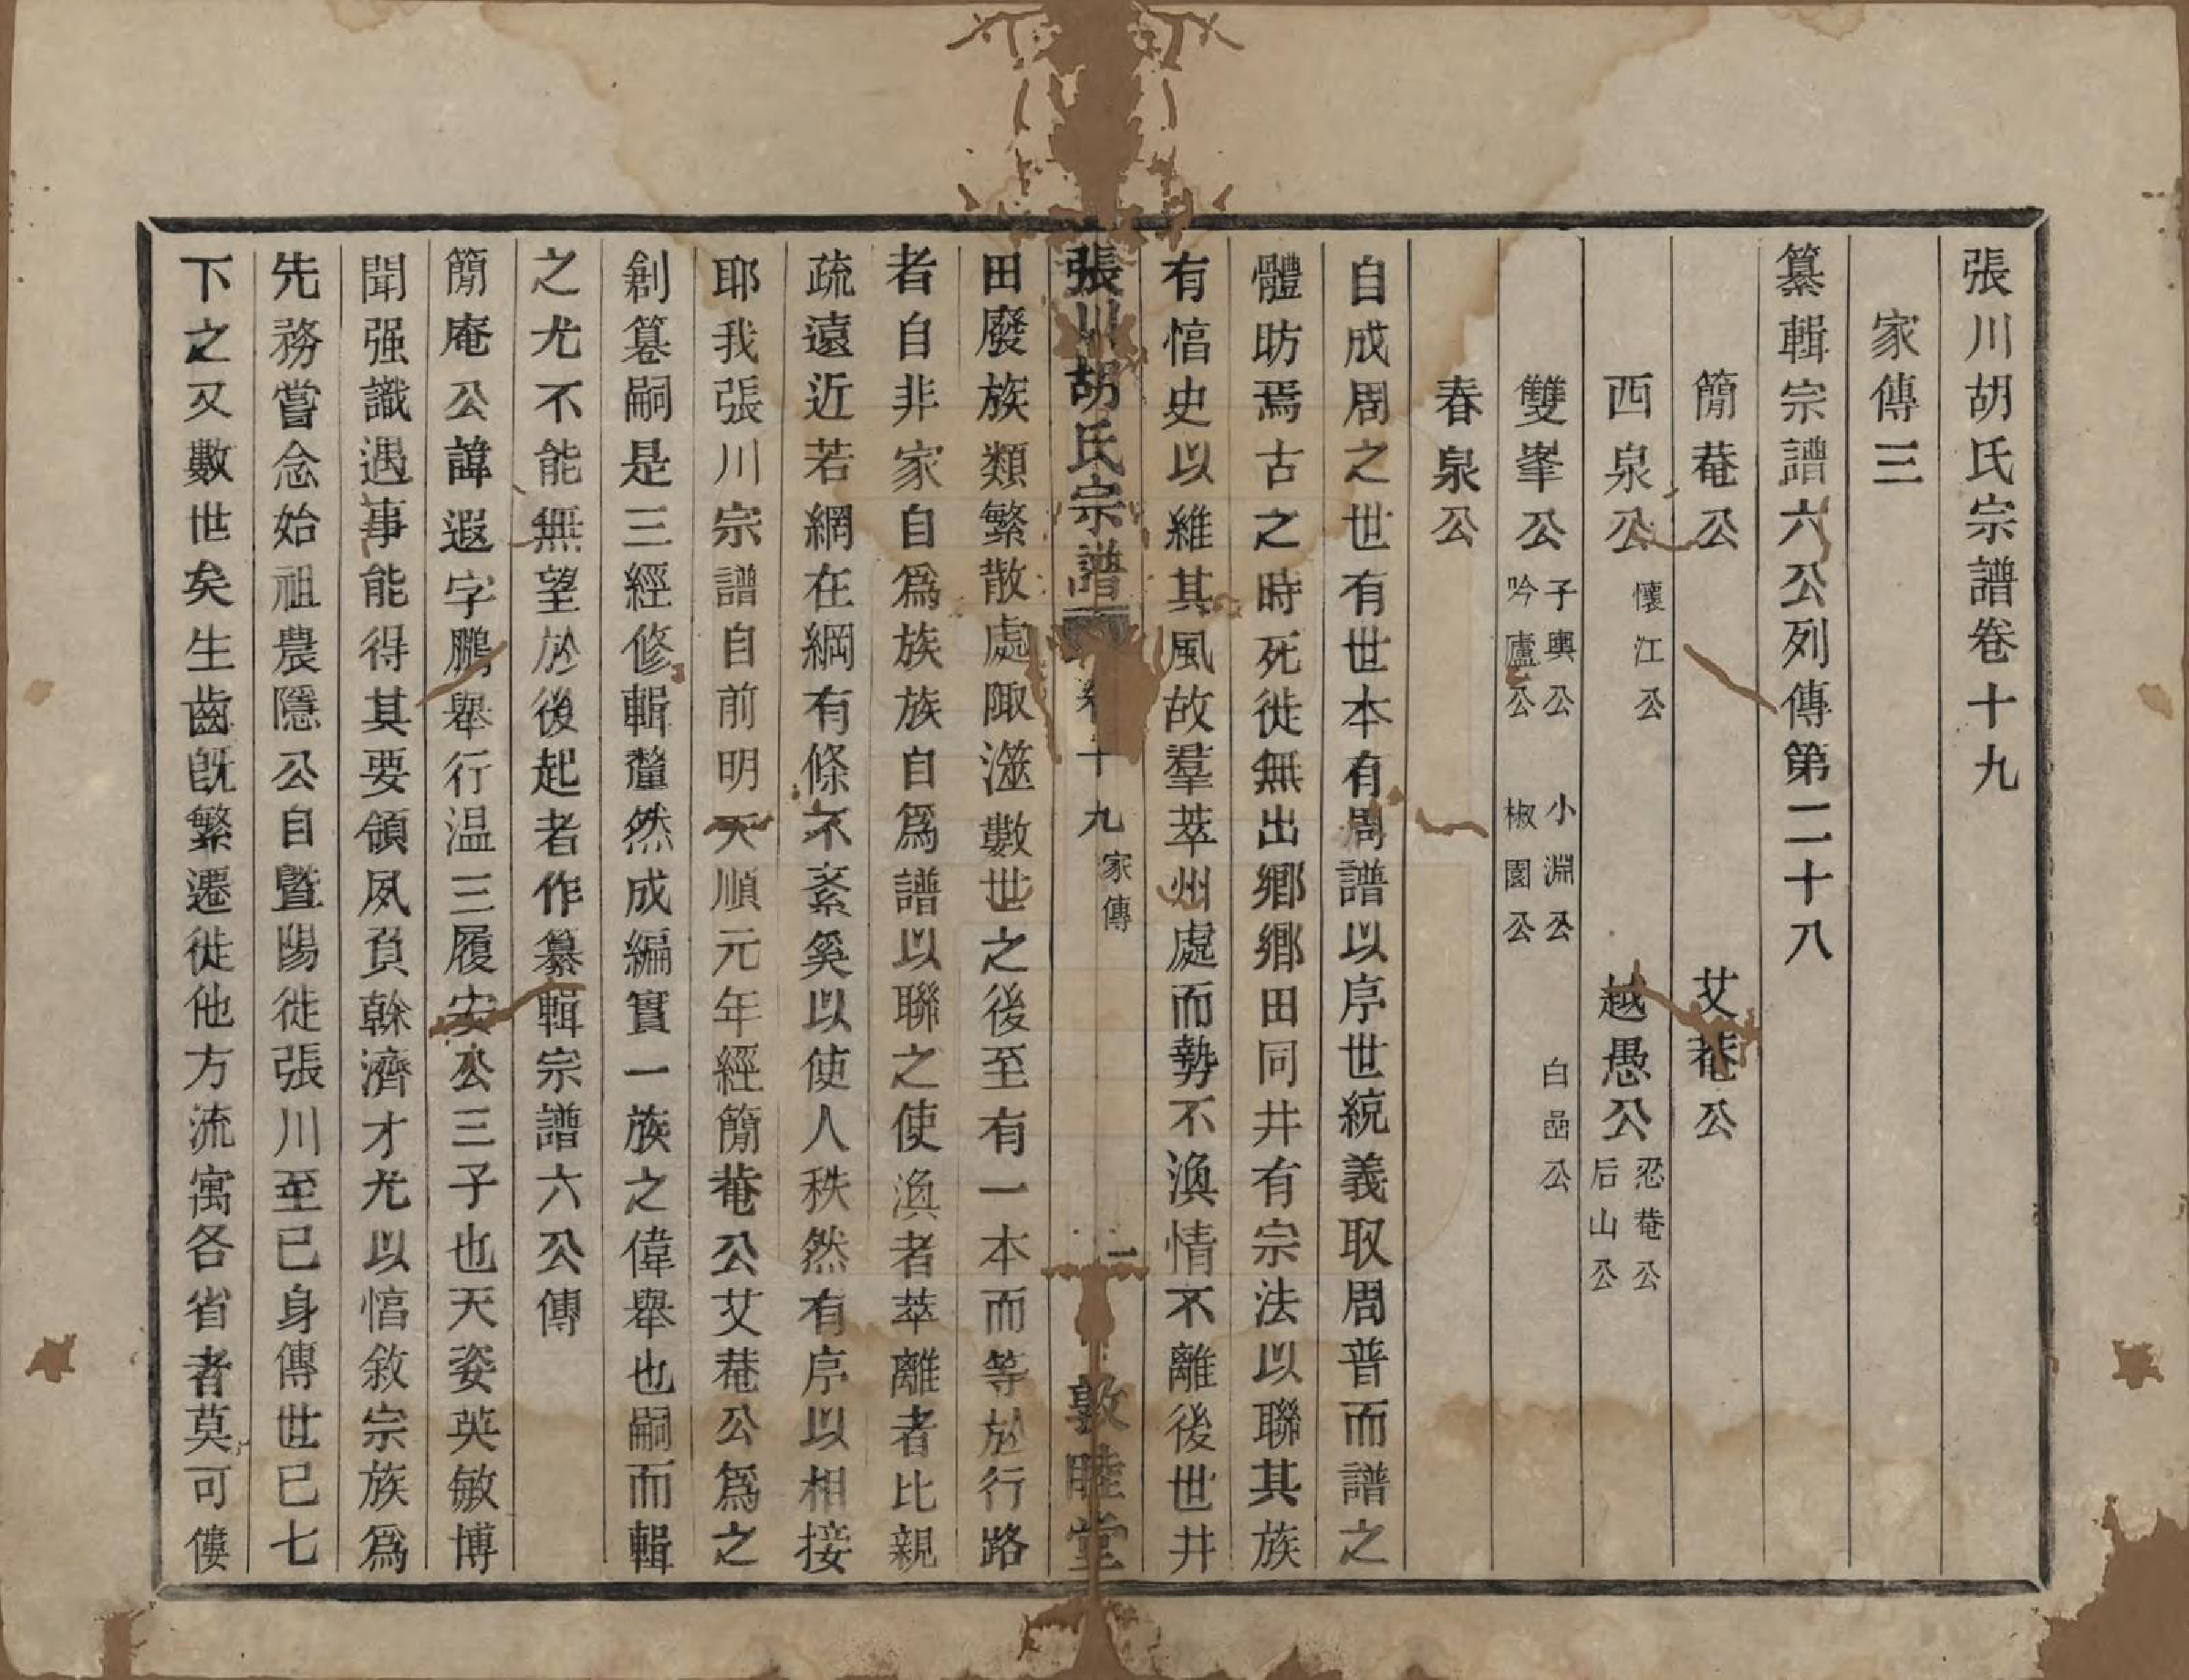 張川胡氏宗譜卷十九
家傳三
纂輯宗譜六公列傳第二十八
簡菴公 艾菴公
西泉公 懷江公 越愚公 忍菴公 后山公
雙峯公 子輿公 吟廬公 小淵公 椒園公 白嵒公
春泉公
自成周之世有世本有周譜以序世統義取周普而譜之
體昉焉古之時死徙無出鄉鄉田同井有宗法以聯其族
有悺史以維其風故羣萃州處而勢不渙情不離後世井
張川胡氏宗譜 卷十九 家傳 一 敦睦堂
田廢族類繁散處陬澨數世之後至有一本而等於行路
者自非家自爲族族自爲譜以聯之使渙者萃離者比親
疏遠近若網在綱有條不紊奚以使人秩然有序以相接
耶我張川宗譜自前明天順元年經簡菴公艾菴公爲之
創簒嗣是三經修輯釐然成編實一族之偉舉也嗣而輯
之尤不能無望於後起者作纂輯宗譜六公傳
簡庵公諱遐字鵬舉行温三履安公三子也天姿英敏博
聞强識遇事能得其要領夙負榦濟才尤以悺敘宗族爲
先務嘗念始祖農隱公自暨陽徙張川至已身傳世已七
下之又數世矣生齒旣繁遷徙他方流寓各省者莫可僂